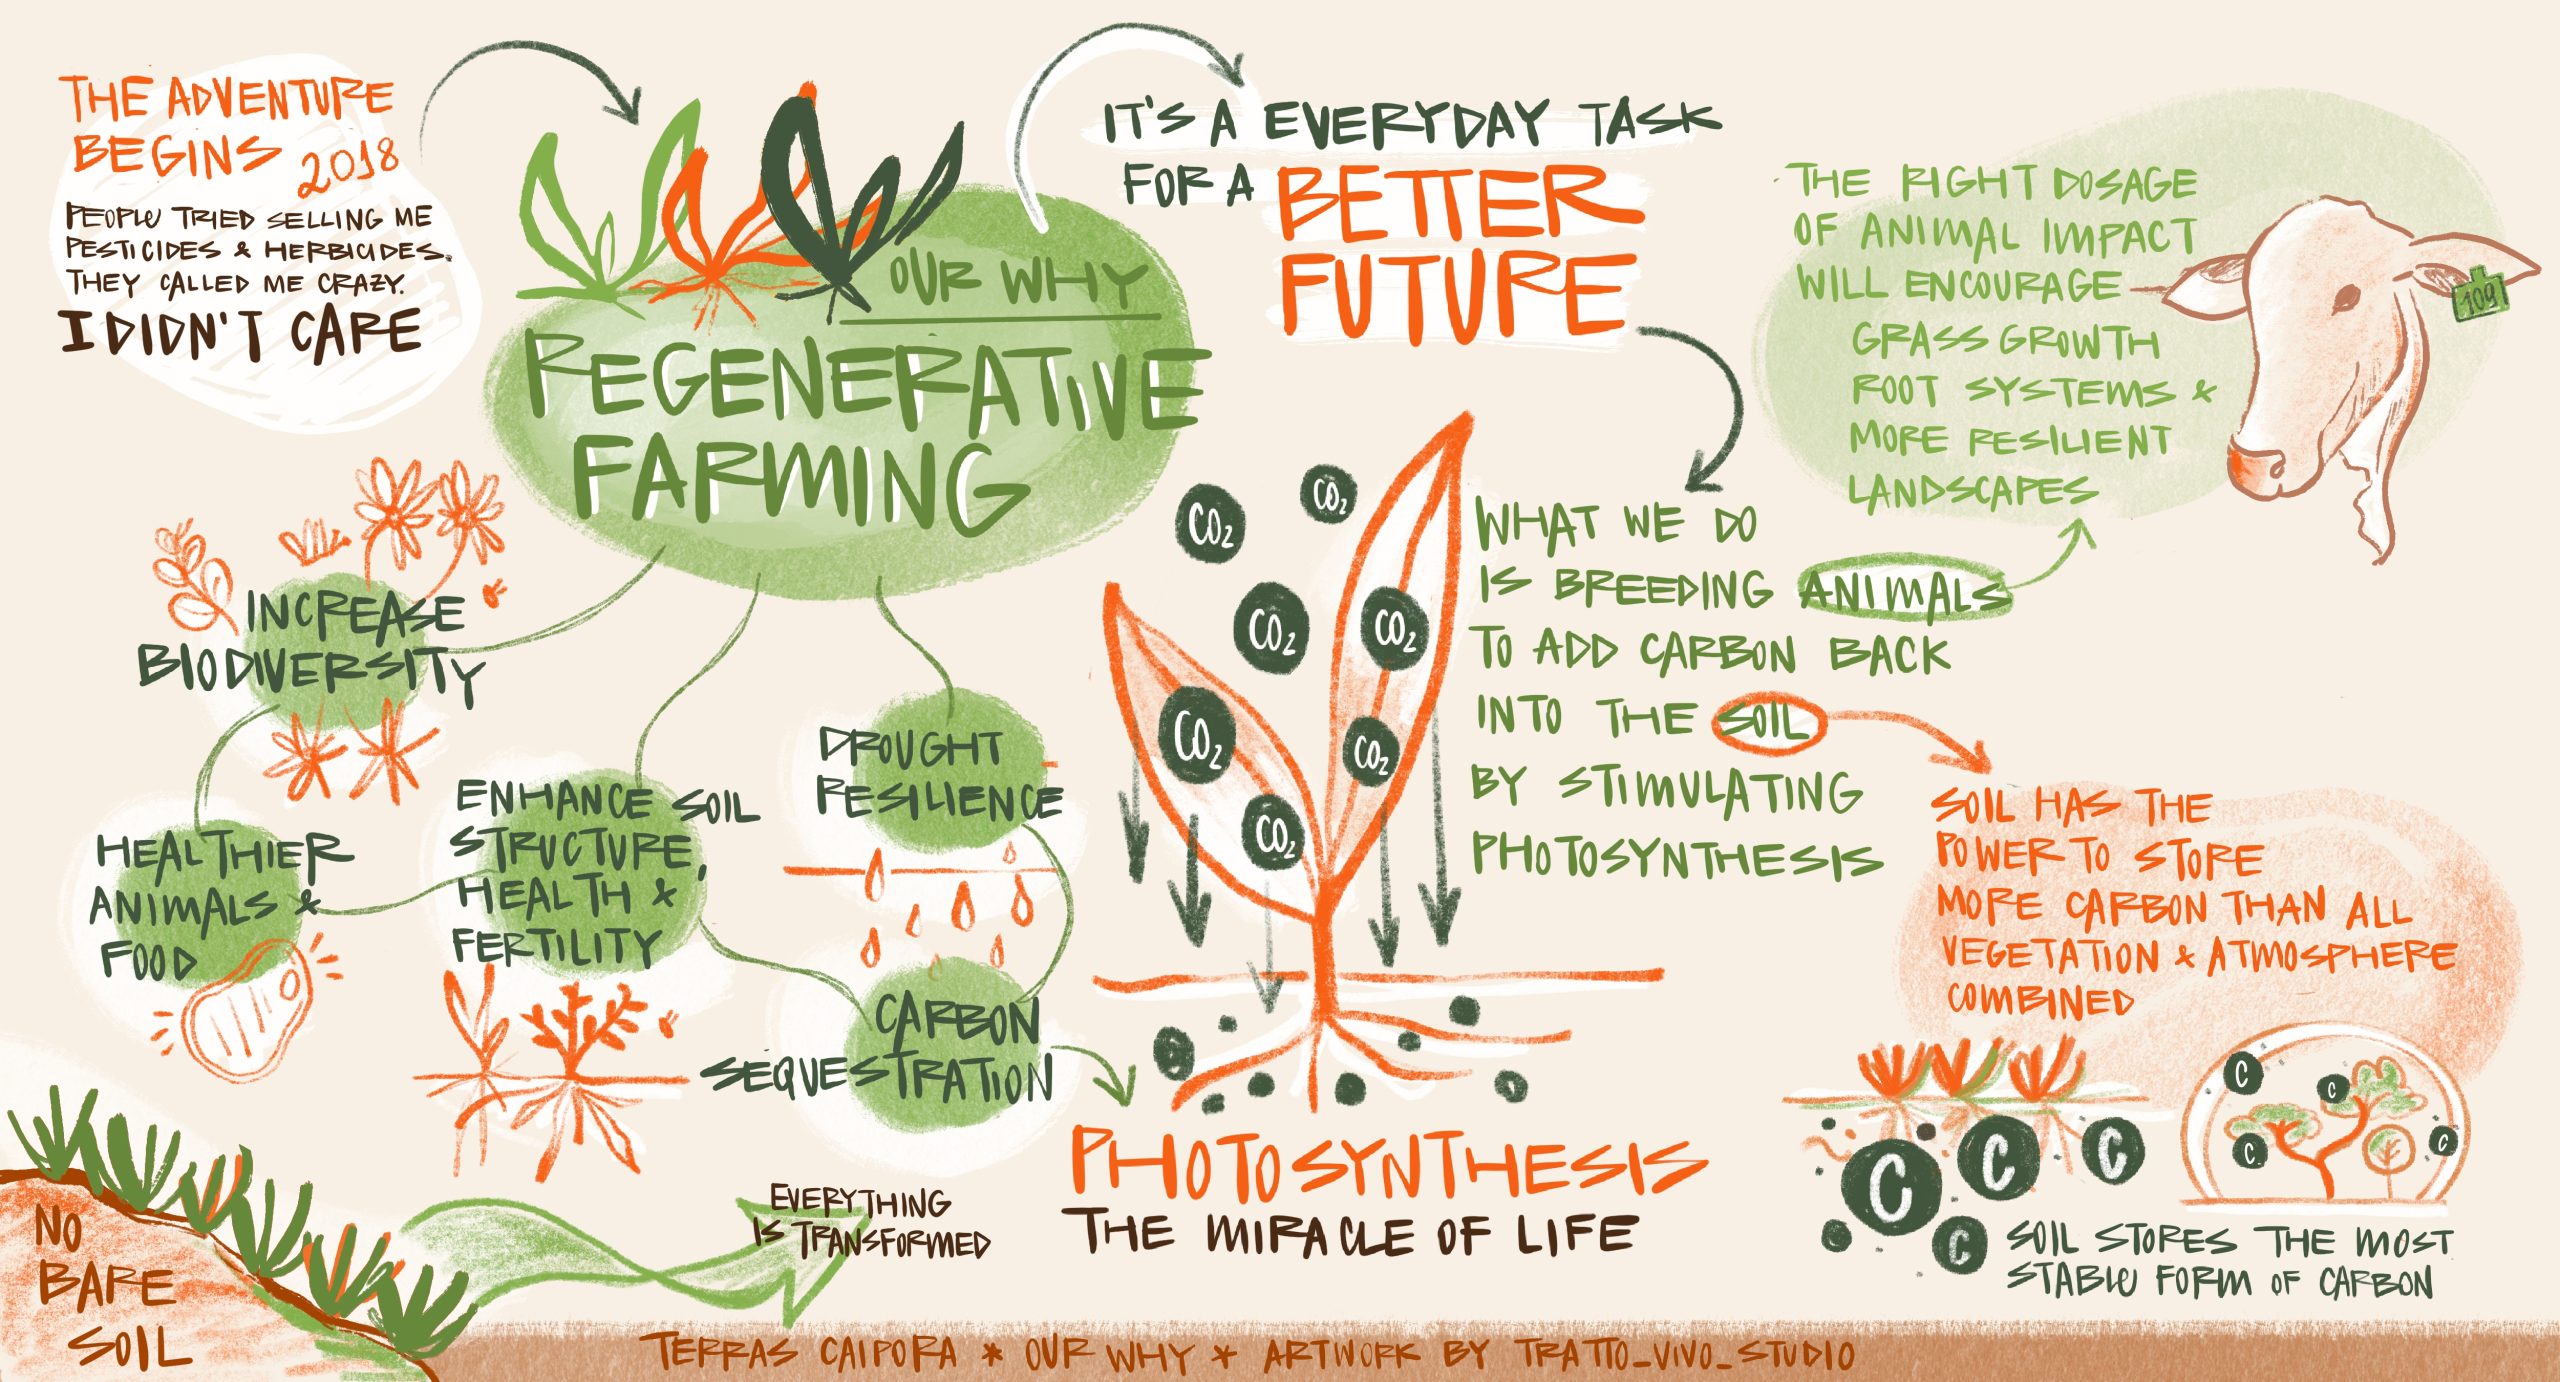 THE ADVENTURE
BEGINS 2018
PEOPLE TRIED SELLING ME
PESTICIDES & HERBICIDES.
THEY CALLED ME CRAZY.
I DIDN'T CARE
OUR WHY
REGENERATIVE
FARMING
IT'S A EVERYDAY TASK
FOR A BETTER
FUTURE
THE RIGHT DOSAGE
OF ANIMAL IMPACT
WILL ENCOURAGE
GRASS GROWTH
ROOT SYSTEMS &
MORE RESILIENT
LANDSCAPES
109
INCREASE
BIODIVERSITY
HEALTHIER
ANIMALS &
FOOD
ENHANCE SOIL
STRUCTURE,
HEALTH &
FERTILITY
DROUGHT
RESILIENCE
CARBON
SEQUESTRATION
CO2
CO2
CO2
CO2
CO2
CO2
CO2
WHAT WE DO
IS BREEDING ANIMALS
TO ADD CARBON BACK
INTO THE SOIL
BY STIMULATING
PHOTOSYNTHESIS
SOIL HAS THE
POWER TO STORE
MORE CARBON THAN ALL
VEGETATION & ATMOSPHERE
COMBINED
C
C
C
C
C
C
C
C
SOIL STORES THE MOST
STABLE FORM OF CARBON
PHOTOSYNTHESIS
THE MIRACLE OF LIFE
EVERYTHING
IS TRANSFORMED
NO
BARE
SOIL
TERRAS CAIPORA * OUR WHY * ARTWORK BY TRATTO_VIVO_STUDIO